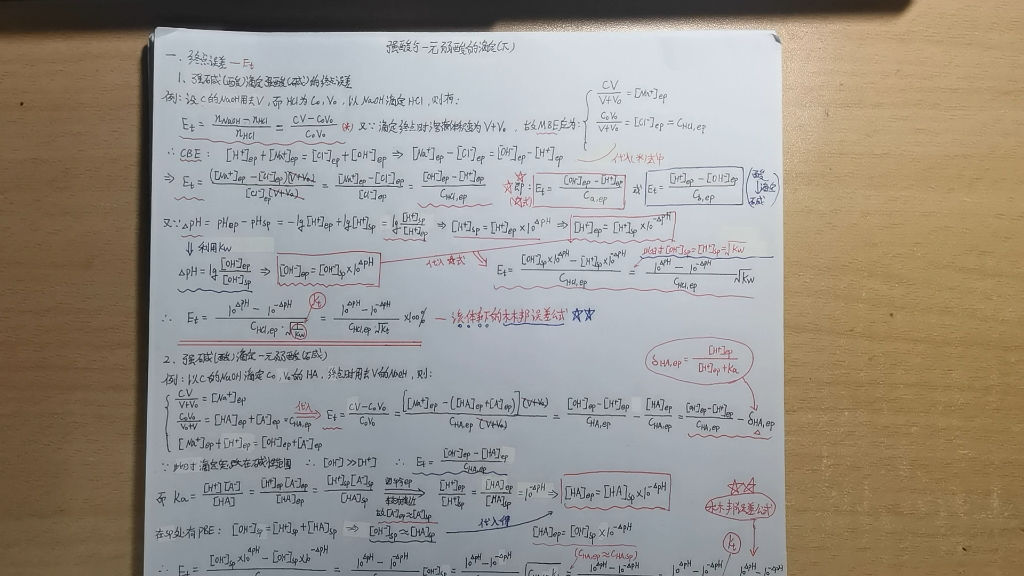 强酸与一元弱酸的滴定(下)
一. 终点误差 — Et
1、强碱(酸)滴定强酸(碱)的终点误差
例: 设C的NaOH用去V, 而HCl为C₀, V₀, 以NaOH滴定HCl, 则有:
Et = (nNaOH − nHCl)/nHCl = (CV − C₀V₀)/(C₀V₀) (*) 又∵ 滴定终点时 V+V₀, MBE应为: { CV/(V+V₀) = [Na⁺]ep
C₀V₀/(V+V₀) = [Cl⁻]ep = C_HCl,ep
∴ CBE: [H⁺]ep + [Na⁺]ep = [Cl⁻]ep + [OH⁻]ep ⇒ [Na⁺]ep − [Cl⁻]ep = [OH⁻]ep − [H⁺]ep 代入(*)式中
⇒ Et = ([Na⁺]ep − [Cl⁻]ep)(V+V₀)/([Cl⁻]ep(V+V₀)) = ([Na⁺]ep − [Cl⁻]ep)/[Cl⁻]ep = ([OH⁻]ep − [H⁺]ep)/C_HCl,ep ☆ 即: Et = ([OH⁻]ep − [H⁺]ep)/Ca,ep 或 Et = ([H⁺]ep − [OH⁻]ep)/Cb,ep (酸滴定碱)
(☆式)
又∵ △pH = pHep − pHsp = −lg[H⁺]ep + lg[H⁺]sp = lg [H⁺]sp/[H⁺]ep ⇒ [H⁺]sp = [H⁺]ep×10^△pH ⇒ [H⁺]ep = [H⁺]sp×10^−△pH
⇓ 利用Kw
此时[OH⁻]sp = [H⁺]sp = √Kw
△pH = lg [OH⁻]ep/[OH⁻]sp ⇒ [OH⁻]ep = [OH⁻]sp×10^△pH 代入☆式 Et = ([OH⁻]sp×10^△pH − [H⁺]sp×10^−△pH)/C_HCl,ep = (10^△pH − 10^−△pH)/C_HCl,ep √Kw
∴ Et = (10^△pH − 10^−△pH)/(C_HCl,ep·√(1/Kw)) Kt = (10^△pH − 10^−△pH)/(C_HCl,ep √Kt) ×100% — 该体系下的林邦误差公式 ☆☆
2. 强碱(酸)滴定一元弱酸(碱)
例: 以C的NaOH滴定C₀, V₀的HA, 终点时用去V的NaOH, 则:
δHA,ep = [H⁺]ep/([H⁺]ep + Ka)
{ CV/(V+V₀) = [Na⁺]ep
C₀V₀/(V₀+V) = [HA]ep + [A⁻]ep = C_HA,ep 代入 ⇒ Et = (CV − C₀V₀)/(C₀V₀) = [[Na⁺]ep − ([HA]ep + [A⁻]ep)](V+V₀)/(C_HA,ep (V+V₀)) = ([OH⁻]ep − [H⁺]ep)/C_HA,ep − [HA]ep/C_HA,ep = ([OH⁻]ep − [H⁺]ep)/C_HA,ep − δHA,ep
[Na⁺]ep + [H⁺]ep = [OH⁻]ep + [A⁻]ep
∵ 此时滴定突跃在碱性范围 ∴ [OH⁻] ≫ [H⁺] ∴ Et = ([OH⁻]ep − [HA]ep)/C_HA,ep
而 Ka = [H⁺][A⁻]/[HA] = [H⁺]ep[A⁻]ep/[HA]ep = [H⁺]sp[A⁻]sp/[HA]sp 故[A⁻]ep≈[A⁻]sp [H⁺]ep/[H⁺]sp = [HA]ep/[HA]sp = 10^−△pH ⇒ [HA]ep = [HA]sp×10^−△pH
☆☆
林邦误差公式
在sp处有PBE: [OH⁻]sp = [H⁺]sp + [HA]sp ⇒ [OH⁻]sp ≈ [HA]sp 代入得 [HA]ep = [OH⁻]sp×10^−△pH
(C_HA,ep ≈ C_HA,sp) Kt
∴ Et = ([OH⁻]sp×10^△pH − [OH⁻]sp×10^−△pH) = (10^△pH − 10^−△pH) [OH⁻]sp = 10^△pH − 10^−△pH = 10^△pH − 10^−△pH = 10^△pH − 10^−△pH